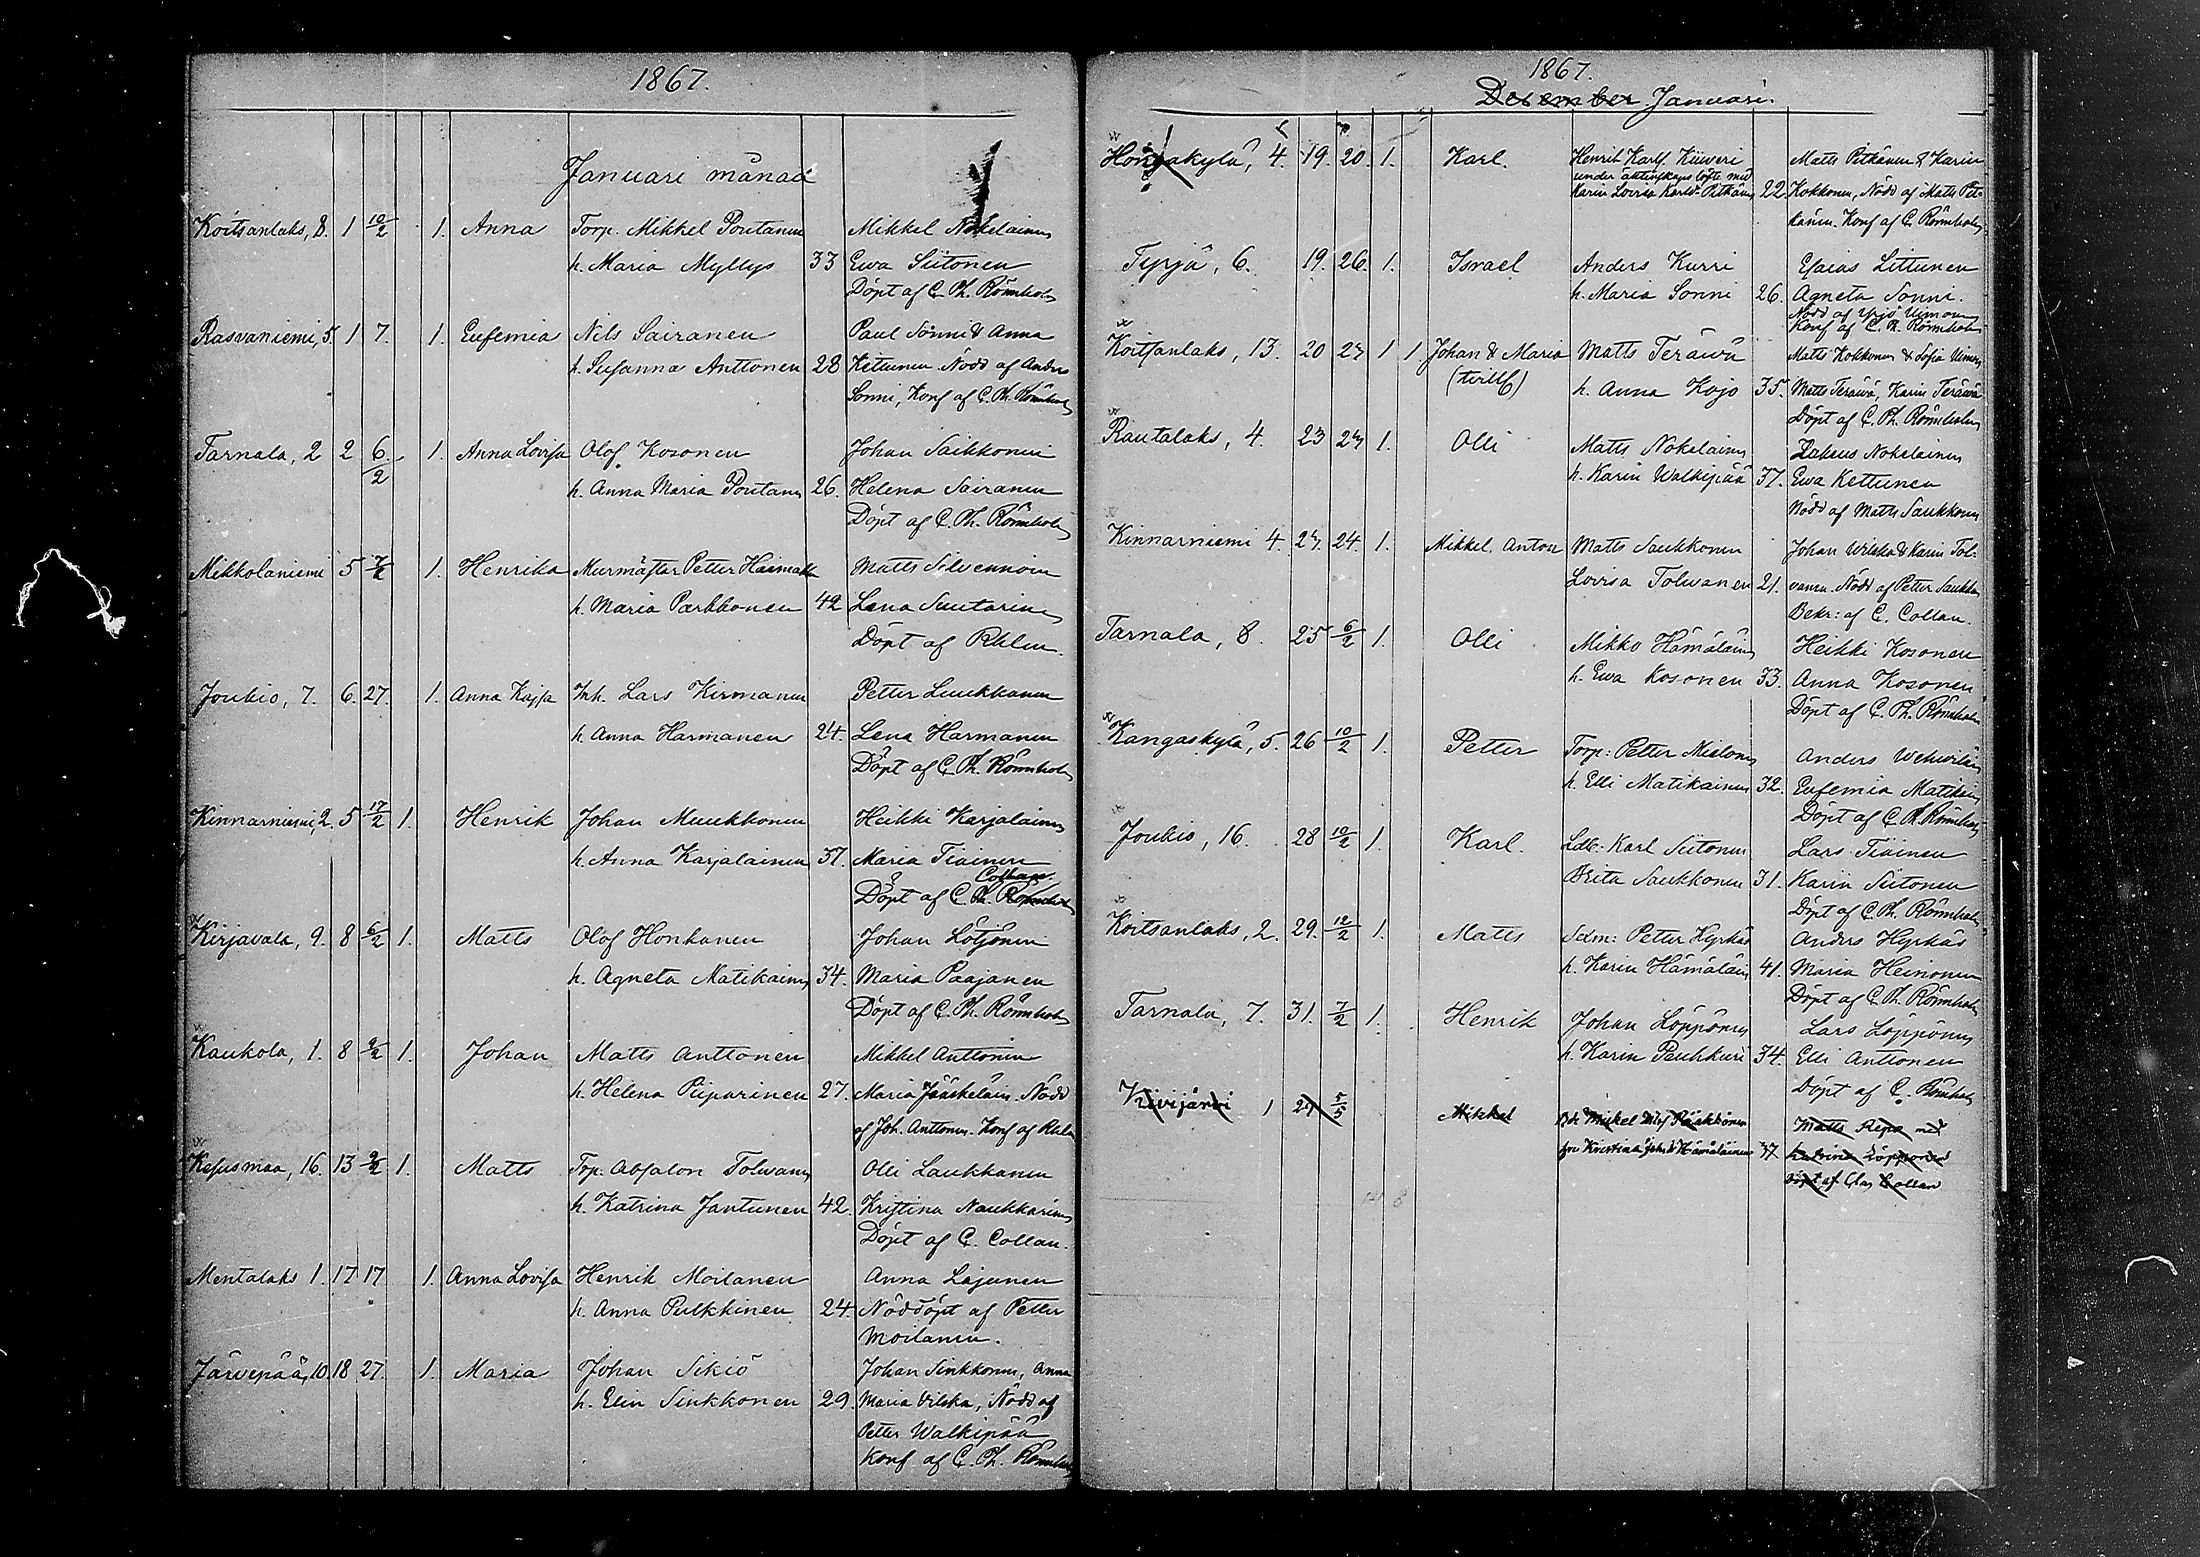 1867.
Januari månad
Koitsanlaks, 8. 1 10/2 1. Anna Torp. Mikkel Poutanen Mikkel Nokelainen
h. Maria Myllys 33 Ewa Siitonen
Döpt af C. Th. Römnholm
Rasvaniemi, 5. 1 7. 1. Eufemia Nils Sairanen Paul Sonni & Anna
h. Susanna Anttonen 28 Kettunen Nödd af Anders
Sonni, Konf af C. Th. Römnholm
Tarnala, 2 2 6/2 1. Anna Lovisa Olof Kosonen Johan Saikkonen
h. Anna Maria Poutanen 26. Helena Sairanen
Döpt af C. Th. Römnholm
Mikkolaniemi 5 7/2 1. Henrika Murmästar Petter Matts Silvennoin
h. Maria Parkkonen 42 Lena Suutarinen
Döpt af
Joukio, 7. 6. 27. 1. Anna Kajsa Inh. Lars Kirmanen Petter Luukkanen
h. Anna Harmanen 24. Lena Harmanen
Döpt af C. Th. Römnholm
Kinnarniemi, 2. 5 17/2 1. Henrik Johan Muukkonen Heikki Karjalainen
h. Anna Karjalainen 37. Maria Tiainen
Collan
Döpt af C. Th. Römnholm
Kirjavala, 9. 8 6/2 1. Matts Olof Honkanen Johan Lötjönen
h. Agneta Matikainen 34. Maria Paajanen
Döpt af C. Th. Römnholm
Kaukola, 1. 8 9/2 1. Johan Matts Anttonen Mikkel Anttonen
h. Helena Piiparinen 27. Maria Jääskeläin. Nödd
af Joh. Anttonen. Konf af
Kesusmaa, 16. 13 9/2 1. Matts Torp. Absalon Tolwanen Olli Laukkanen
h. Katrina Jantunen 42. Kristina Naukkarinen
Döpt af C. Collan.
Mentalaks 1. 17 17 1. Anna Lovisa Henrik Moilanen Anna Lajunen
h. Anna Pulkkinen 24. Nöddöpt af Petter
Moilanen.
Järvepää, 10. 18 27. 1. Maria Johan Sikiö Johan Sinkkonen, Anna
h. Elin Sinkkonen 29. Maria Vilska, Nödd af
Petter Walkipää
Konf af C. Th. Römnholm
1867.
December Januari.
Honkakylä, 4. 19. 20. 1. Karl. Henrik Karls. Kiiweri Matts Pitkänen & Karin
under äktenskaps löfte med
Karin Lovisa Karlsd. Pitkänen 22. Kokkonen, Nödd af Matts Pit-
känen. Konf af C. Römnholm
Tyrjä, 6. 19. 26. 1. Israel Anders Kurri Esaias Littunen
h. Maria Sonni 26. Agneta Sonni.
Nödd af Yrjö Uimonen
Konf af C. Th. Römnholm
Koitsanlaks, 13. 20 27 1 1 Johan & Maria Matts Teräwä Matts Kokkonen & Sofia Uimonen
(tvill) h. Anna Kojo 35. Matts Teräwä, Karin Teräwä
Döpt af C. Th. Römnholm
Rautalaks, 4. 23 27 1. Olli Matts Nokelainen Zakeus Nokelainen
h. Karin Walkipää 37. Ewa Kettunen
Nödd af Matts Saukkonen
Kinnarniemi 4. 27. 24. 1. Mikkel Anton Matts Saukkonen Johan Vilska & Karin Tol-
Lovisa Tolwanen 21. vanen. Nödd af Petter Saukko
Bekr: af C. Collan.
Tarnala, 8. 25 6/2 1. Olli Mikko Hämäläinen Heikki Kosonen
h. Ewa Kosonen 33. Anna Kosonen
Döpt af C. Th. Römnholm
Kangaskylä, 5. 26 10/2 1. Petter Torp: Petter Mielonen Anders Wehwiläin
h. Elli Matikainen 32. Eufemia Matikain
Döpt af C. Th. Römnholm
Joukio, 16. 28 10/2 1. Karl. Ldb: Karl Siitonen Lars Tiainen
Brita Saukkonen 31. Karin Siitonen
Döpt af C. Th. Römnholm
Koitsanlaks, 2. 29. 12/2 1. Matts Sdm: Petter Hyrkäs Anders Hyrkäs
h. Karin Hämäläin 41. Maria Heinonen
Döpt af C. Th. Römnholm
Tarnala, 7. 31. 7/2 1. Henrik Johan Löppönen Lars Löppönen
h. Karin Peuhkuri 34. Elli Anttonen
Döpt af C. Römnholm
Kivijärvi 1 27 5/5 Mikkel Mickel Pääkkönen Matts Repo med
fru Kristina Joh. d. Hämäläinen 37 Katrina Löpponen
Döpt af Clas Collan